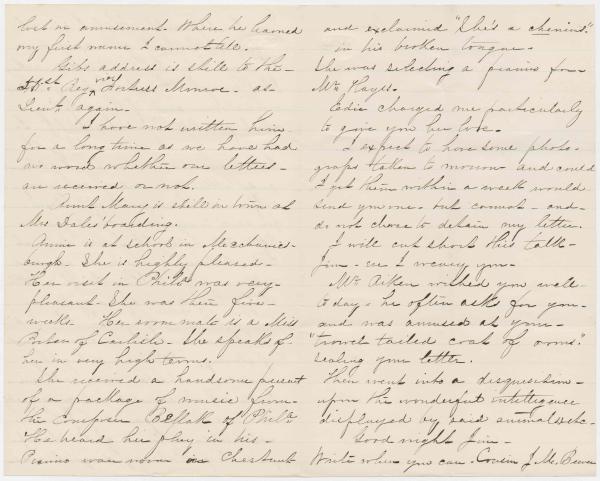 lost in amusement. Where he learned
my first name I cannot tell.
Gibs address is still to the
Reg. Fortress Monroe - as
Lieut again.
I have not written him
for a long time as we have had
no word whether our letters -
are received or not.
Aunt Mary is still in town at
Mrs Dales' boarding.
Annie is at school in Mechanics-
burgh - She is highly pleased -
Her visit in Phila was very -
pleasant - She was there five -
weeks. Her room mate is a Miss
of Carlisle - She speaks of -
her in very high terms.
She received a handsome present
of a package of music from -
the composer of Phila
He heard her play in his -
Piano ware room Chestnut
and exclaimed "She's a
in his broken tongue -
She was selecting a piano for -
Mr Hayes.
Edie charged me particularly
to give you her love.
I expect to have some photo-
graps taken to morrow and could
I get them within a week would
send you one - but cannot - and -
do not choose to detain my letter.
I will cut short this talk -
Jim - ere I weary you -
Mr Aiken wished you well
to day - he often asks for you -
and was amused at your -
"trowel tailed coat of arms"
sealing your letter.
Then went into a disquisition -
upon the wonderful intelligence
displayed by said animals &c -
Good night Jim -
Write when you can - Cousin J. Mc. Beaver